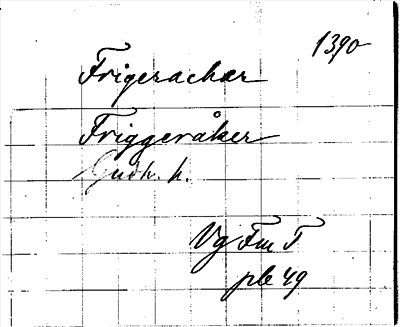 1390
Frigerachær
Friggeråker
Gudh. h.
Vg Fm T
ple 49